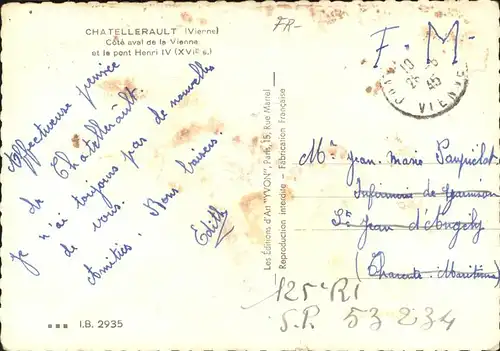 CHATELLERAULT (Vienne)
Côté aval de la Vienne
et le pont Henri IV (XVIe s.)
FR-
F. M.
VIENNE
Affectueuse pensée
de Chatellerault.
Je n'ai toujours pas de nouvelles
de vous.
Amitiés. Bons baisers.
Edith
Les Éditions d'Art "YVON", Paris, 15, Rue Martel
Reproduction interdite - Fabrication Française
Mr Jean. Marie
Infirmerie de Garnison
St Jean d'Angély
(Charente Maritime)
125e RI
S.P. 53 234
I.B. 2935